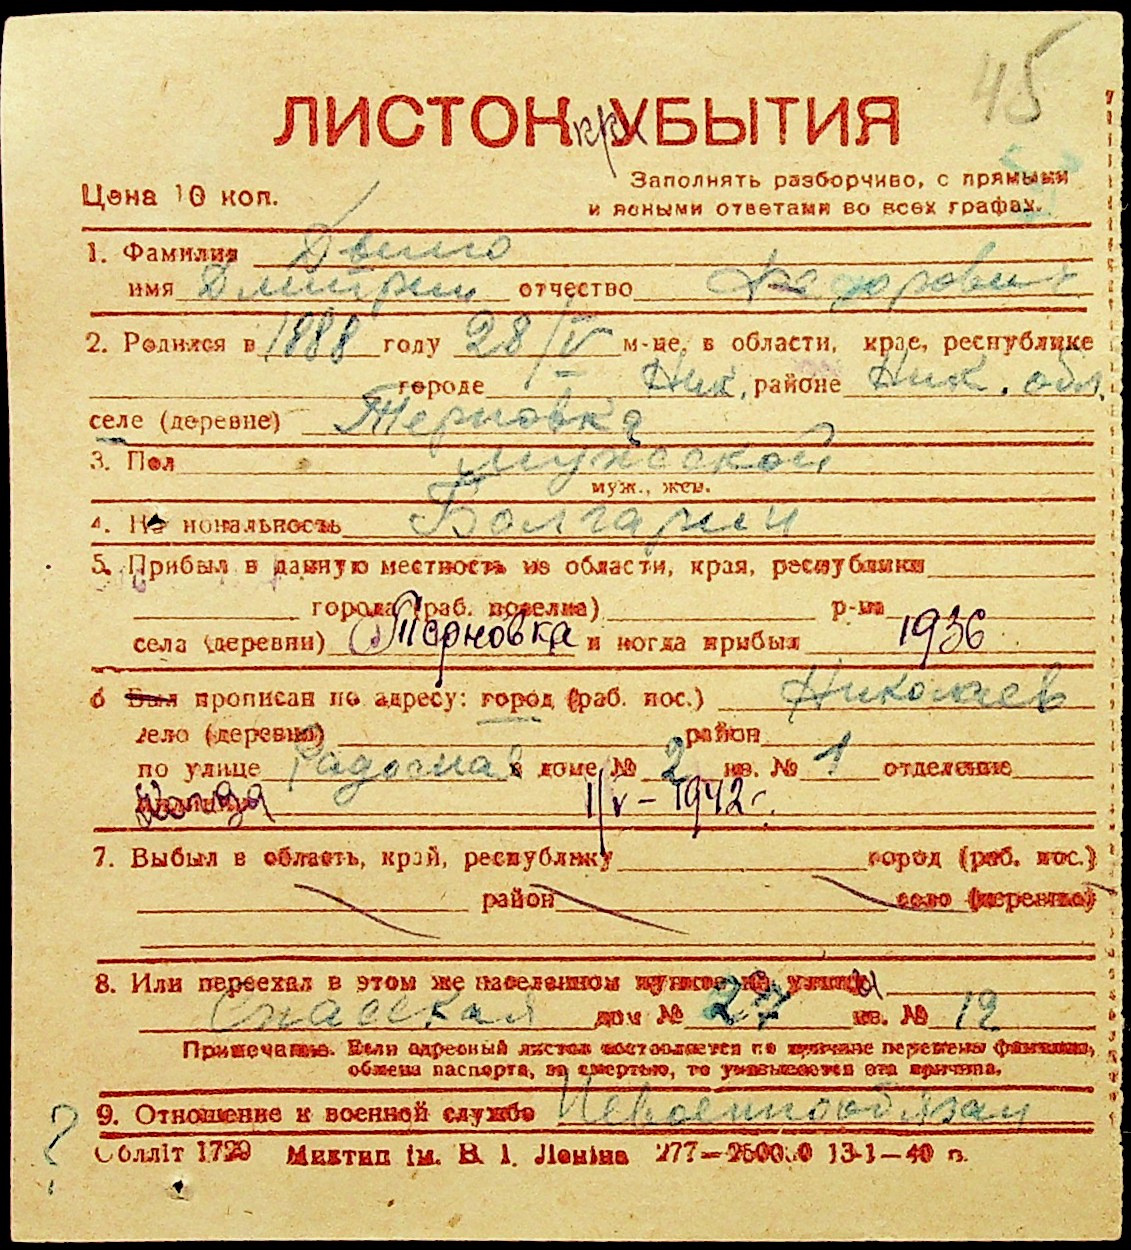 45
ЛИСТОК УБЫТИЯ
Цена 10 коп.
Заполнять разборчиво, с прямыми
и ясными ответами во всех графах.
1. Фамилия
имя Дмитрий отчество Федорович
2. Родился в 1888 году 28/V м-це, в области, крае, республике
городе Ник. районе Ник. обл.
селе (деревне) Терновка
3. Пол мужской
муж., жен.
4. На иональность Болгарин
5. Прибыл в данную местность из области, края, республики
города (раб. поселка) р-на
села (деревни) Терновка и когда прибыл 1936
6 Был прописан по адресу: город (раб. пос.) Николаев
село (деревня) район
по улице Радосная в доме № 2 кв. № 1 отделение
когда 1/V – 1942 г.
7. Выбыл в область, край, республику город (раб. пос.)
район село (деревню)
8. Или переехал в этом же населенном пункте на улицу
Спасская дом № 27 кв. № 12
Примечание. Если адресный листок составляется по причине перемены фамилии,
обмена паспорта, за смертью, то указывается эта причина.
9. Отношение к военной службе Невоеннообязан
Облліт 1729 Миктип ім. В. І. Леніна 277—250000 13-1—40 г.